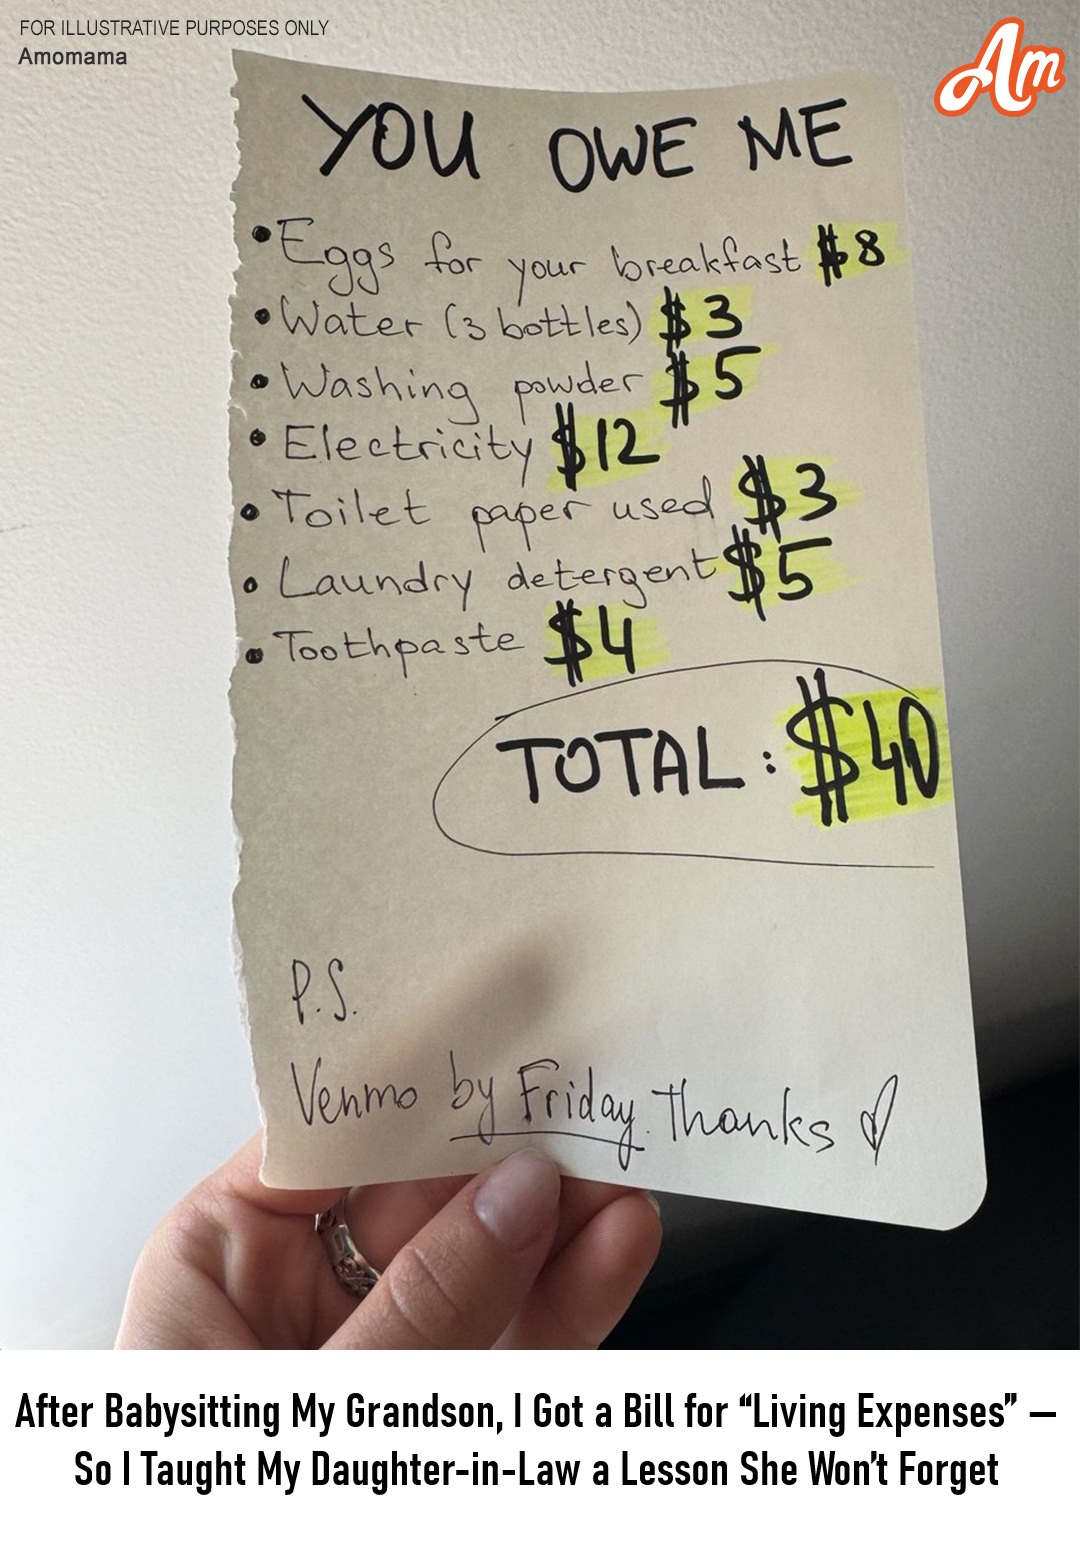 FOR ILLUSTRATIVE PURPOSES ONLY
Amomama
Am
YOU OWE ME
• Eggs for your breakfast $8
• Water (3 bottles) $3
• Washing powder $5
• Electricity $12
• Toilet paper used $3
• Laundry detergent $5
• Toothpaste $4
TOTAL: $40
P.S.
Venmo by Friday. Thanks
After Babysitting My Grandson, I Got a Bill for “Living Expenses” —
So I Taught My Daughter-in-Law a Lesson She Won’t Forget